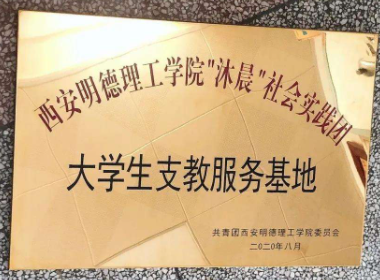 西安明德理工学院"沐晨"社会实践团
大学生支教服务基地
共青团西安明德理工学院委员会
二〇二〇年八月